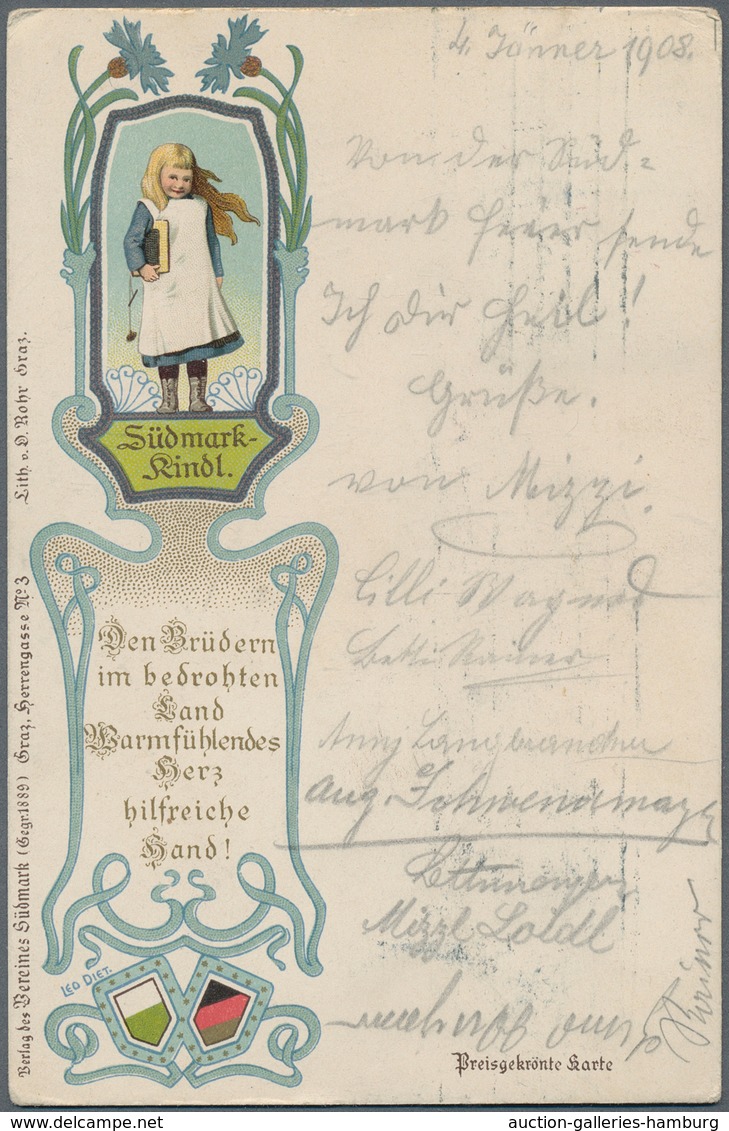 4. Jänner 1908.
Von der Süd=
mark feier sende
Ich dir Heil!
Grüße.
von Mizzi.
Lilli Wagner
Betti Rainer
Anny
Aug.
Mizzl Loidl
Südmark-
Kindl.
Den Brüdern
im bedrohten
Land
Warmfühlendes
Herz
hilfreiche
Hand!
LEO DIET.
Verlag des Vereines Südmark (Gegr. 1889) Graz, Herrengasse No 3
Lith. v. O. Rohr Graz.
Preisgekrönte Karte
auction-galleries-hamburg